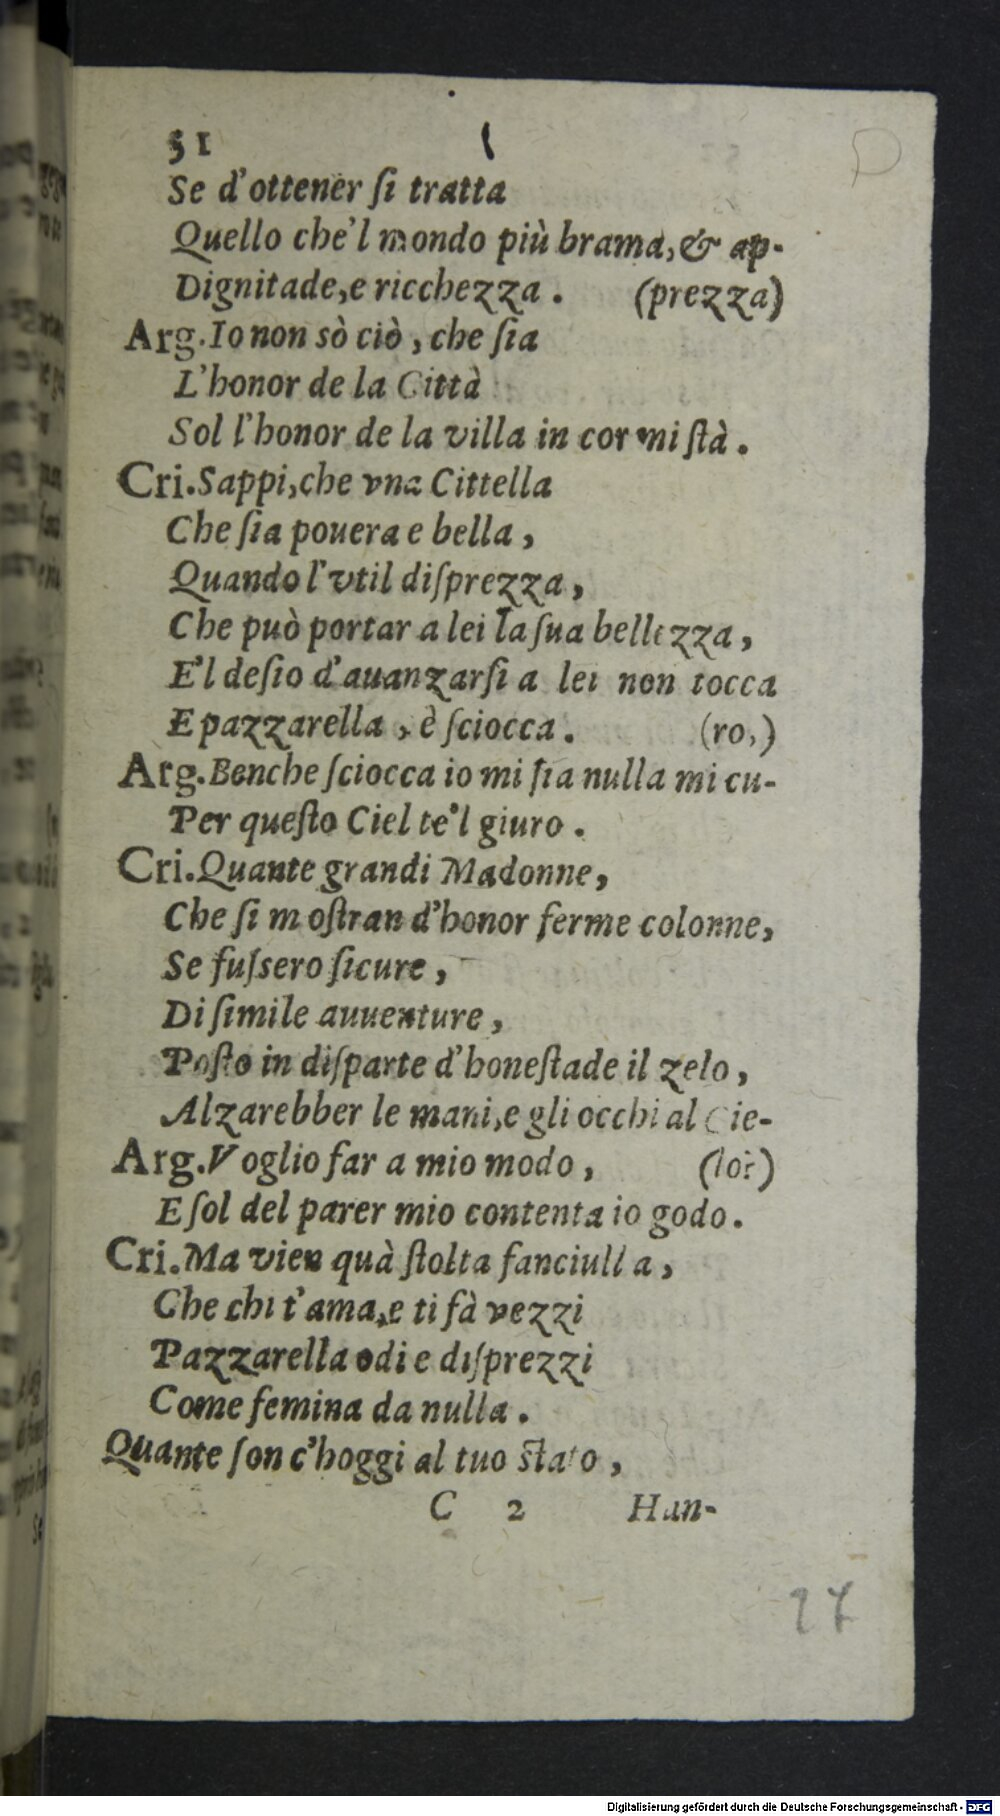 51
Se d'ottener ſi tratta
Quello che'l mondo più brama, & ap-
Dignitade, e ricchezza . (prezza)
Arg. Io non sò ciò, che ſia
L'honor de la Città
Sol l'honor de la villa in cor mi ſtà .
Cri. Sappi, che vna Cittella
Che ſia pouera e bella ,
Quando l'vtil diſprezza ,
Che può portar a lei la ſua bellezza ,
E'l deſio d'auanzarſi a lei non tocca
E pazzarella , è ſciocca . (ro,)
Arg. Benche ſciocca io mi ſia nulla mi cu-
Per queſto Ciel te'l giuro .
Cri. Quante grandi Madonne ,
Che ſi moſtran d'honor ferme colonne,
Se fuſsero ſicure ,
Di ſimile auuenture ,
Poſto in diſparte d'honeſtade il zelo ,
Alzarebber le mani, e gli occhi al Cie-
Arg. Voglio far a mio modo , (lo?)
E ſol del parer mio contenta io godo .
Cri. Ma vien quà ſtolta fanciulla ,
Che chi t'ama, e ti fà vezzi
Pazzarella odi e diſprezzi
Come femina da nulla .
Quante ſon c'hoggi al tuo ſtato ,
C 2 Han-
27
Digitalisierung gefördert durch die Deutsche Forschungsgemeinschaft - DFG